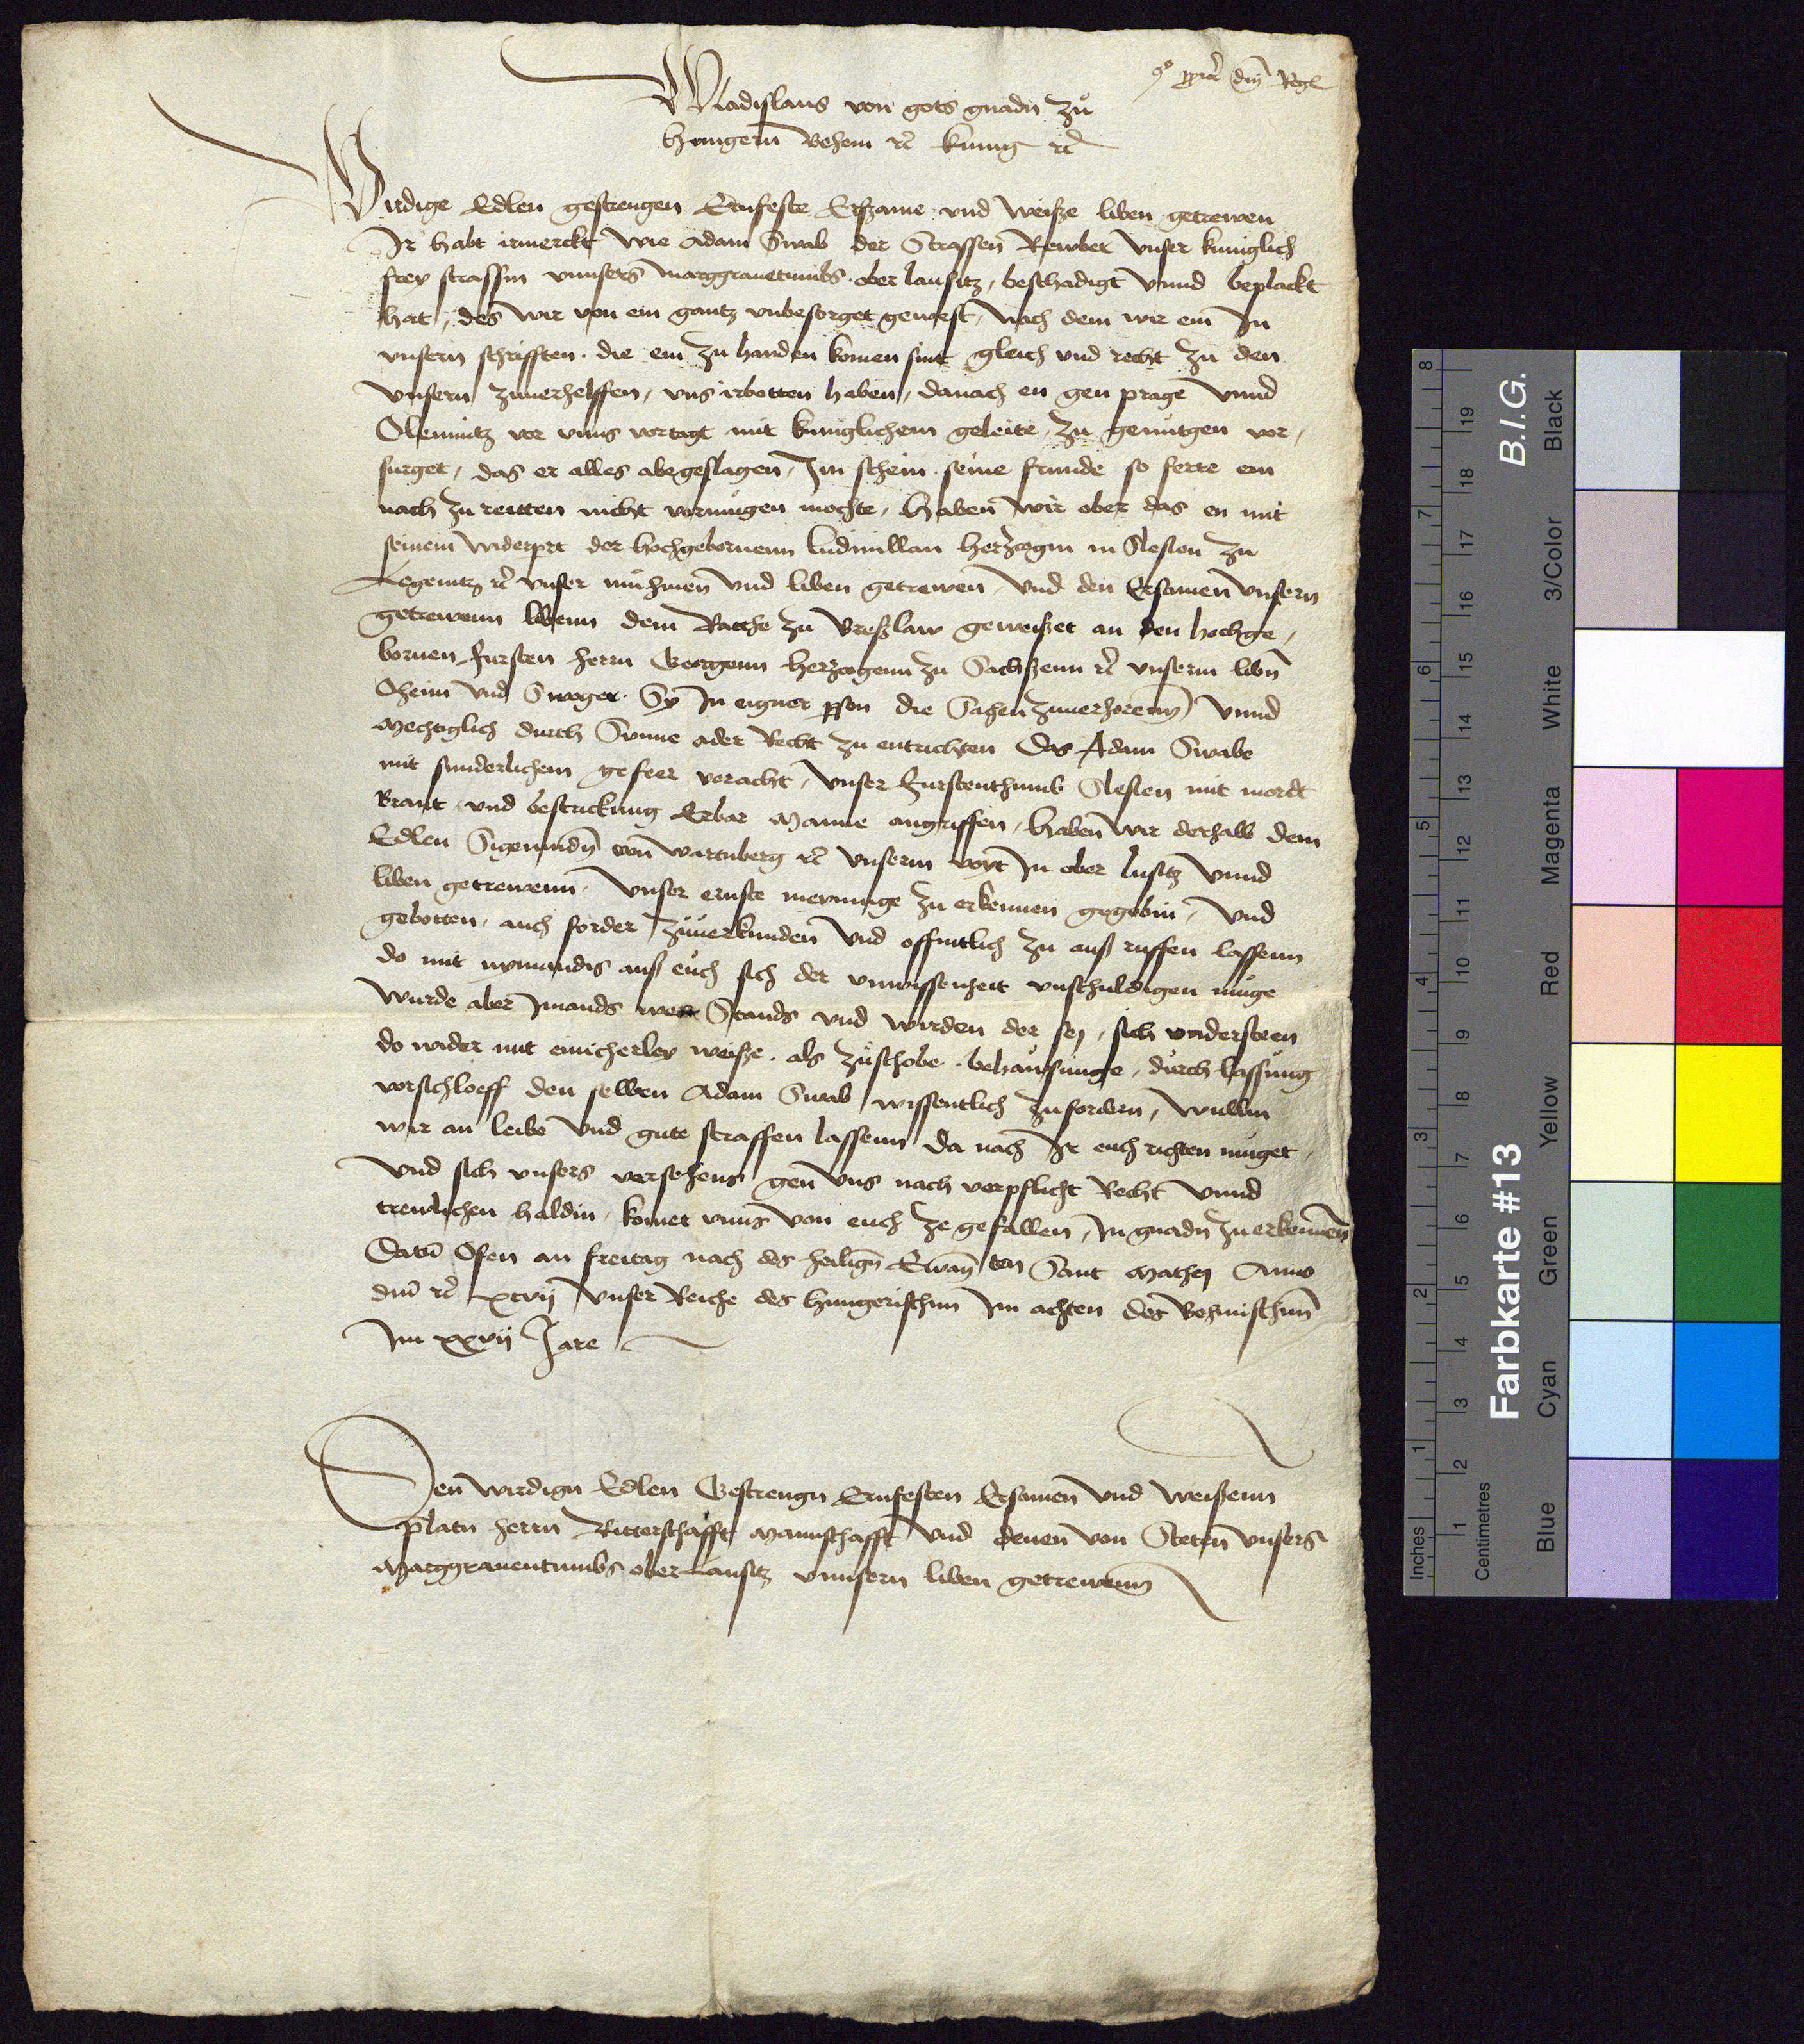 Wladislaus von gots gnadn zu
Hungern Behem rc kunig rc
Wirdige Edlen gestrengen Ernfeste Erszame vnd weisze liben getrewen
Ir habt irmerckt wie Adam Swab der Strassen Rewber vnser kuniglich
frey strassin vnnsers marggrauetumbs ober lausitz, beschadigt vnnd beplackt
hat, des wir von em gantz vnbesorget gewest, nach dem wir em In
vnsern schrifften die em zu handen komen sint gleich vnd recht zu den
vnsern zuuerhelffen, vns irbotten haben, danach en gen prage vnnd
Olemuntz vor vnns vortagt mit kuniglichem geleite, zu genutgen vor,
surget, das er alles abegeslagen, Im schein seine frunde so ferre em
nach zu reitten nicht vormugen mochte, Haben wir ober das en mit
seinem widerprt der hochgebornenn ludmillan herzogin in Slesien zu
Legenitz rc vnser muhmen vnd liben getrewen vnd den Ersamen vnsern
getrewenn libenn dem Ratthe zu Breszlaw geweiszet an den hochge,
bornen fursten herrn Georgenn herzogenn zu Sachszenn rc vnserm libn
Oheim vnd Swoger Sy In eigner pson die Sachen zuuerhorenn vnnd
mechtiglich durch Sunne ader Recht zu entrichten Das Adam Swabe
mit sunderlichem gefeer voracht, vnser Furstenthumb Slesien mit mordt
Brant vnd bestrickung Erbar Manne angriffen, Haben wir derhalb dem
Edlen Sigemundn von wartnberg rc vnserm voyt In ober lusitz vnnd
liben getrewenn, vnser ernste meynunge zu erkennen gegebin, vnd
gebotten, auch forder zuuerkunden vnd offintlich zu ausz ruffen lassenn
do mit nymandis ausz euch sich der vnwissenheit vnschuldigen muge
wurde aber Imands wes Stands vnd wirden der sej, sich vndersteen
do wider mit einicherley weisze als zuschobe behausunge, durch lassung
vorschloeff den selben Adam Swab wissentlich zufordern, wullin
wir an leibe vnd gute straffen lassenn da nach Ir euch richten muget
vnd sich vnsers versehens gen vns nach verpflicht Recht vnnd
trewlichen haldin, komet vnns von euch ze gefallen, In gnadn zuerkennen
Datum Ofen an freitag nach des heilign Ewangten Sant Mathej Anno
dni rc xcvij vnser Reiche des hungerischnn Im achten des Behmischnn
Im xxvij Jare
Den wirdign Edlen Gestrengn Ernfesten Ersamen vnd weiszenn
platn herrn Ritterschafft Mannschafft vnd denen von Stetn vnsers
Marggrauentumbs ober Lausitz vnnsern liben getrewenn
Inches
Centimetres
1 2 3 4 5 6 7 8
1 2 3 4 5 6 7 8 9 10 11 12 13 14 15 16 17 18 19
Farbkarte #13
B.I.G.
Blue Cyan Green Yellow Red Magenta White 3/Color Black